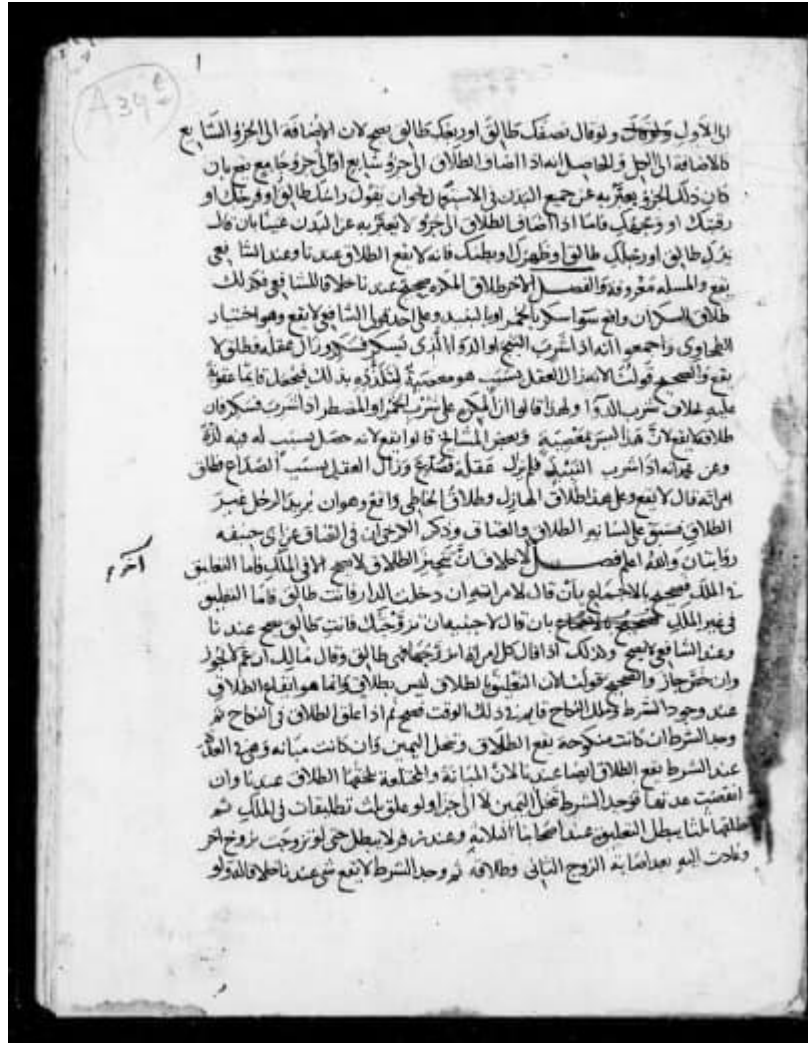 1
A 34
الى الاول ولو قال نصفك طالق او ربعك طالق يصح لان الاضافة الى الجزؤ الشايع
كالاضافة الى الكل والحاصل انه اذا اضاف الطلاق الى جزؤ شايع او الى جزؤ جامع يقع بان
كان ذلك الجزؤ يعبر به عن جميع البدن في الاستعمال نحو ان يقول راسك طالق او فرجك او
رقبتك او وجهك فاما اذا اضاف الطلاق الى جزؤ لا يعبر به عن البدن عينا بان قال
يدك طالق او رجلك طالق او ظهرك او بطنك فانه لا يقع الطلاق عندنا وعند الشافعي
يقع والمسله معروفة والفصل الاخر طلاق المكره صحيح عندنا خلافا للشافعي وكذلك
طلاق السكران واقع سوا سكر بالخمر او بالنبيذ وعلى احد قولي الشافعي لا يقع وهو اختيار
الطحاوي واجمعوا انه اذا شرب البنج او الدوا الذي يسكر فسكر وزال عقله فطلق لا
يقع والصحيح قولنا لانه زال العقل بسبب هو معصية لتلذذه بذلك فيجعل قايما عقوبة
عليه بخلاف شرب الدوا ولهذا قالوا ان المكره على شرب الخمر او المضطر اذا شرب فسكر فان
طلاقه لا يقع لان هذا ليس بمعصية وبعض المشايخ قالوا يقع لانه حصل بسبب له فيه لذة
وعن محمد انه اذا شرب النبيذ فلم يزل عقله فصدع وزال العقل بسبب الصداع فطلق
امراته قال لا يقع وعلى هذا طلاق الهازل وطلاق الخاطي واقع وهو ان يريد الرجل غير
الطلاق فسبق على لسانه الطلاق والعتاق وذكر الكرخي ان في العتاق عن ابي حنيفه
روايتان والله اعلم فصل لا خلاف ان تنجيز الطلاق لا يصح الا في الملك فاما التعليق
في الملك فصحيح بالاجماع بان قال لامراته ان دخلت الدار فانت طالق فاما التعليق
في غير الملك بان قال لاجنبيه ان تزوجتك فانت طالق يصح عندنا
وعند الشافعي لا يصح وكذلك اذا قال كل امراة اتزوجها فهي طالق وقال مالك ان عم لا يجوز
وان خص جاز والصحيح قولنا لان التعليق بالطلاق ليس بطلاق وانما هو ايقاع الطلاق
عند وجود الشرط وملك النكاح قايم في ذلك الوقت فصح ثم اذا علق الطلاق في النكاح ثم
وجد الشرط ان كانت منكوحة يقع الطلاق وتنحل اليمين وان كانت مبانه وهي في العدة
عند الشرط يقع الطلاق ايضا عندنا لان المبانة والمختلعة يلحقها الطلاق عندنا وان
انقضت عدتها فوجد الشرط تنحل اليمين لا الى جزا ولو علق ثلث تطليقات في الملك ثم
طلقها ثلثا يبطل التعليق عند اصحابنا الثلاثه وعند زفر لا يبطل حتى لو تزوجت بزوج اخر
وعادت اليه بعد اصابة الزوج الثاني وطلاقه ثم وجد الشرط لا يقع شي عندنا خلافا له ولو